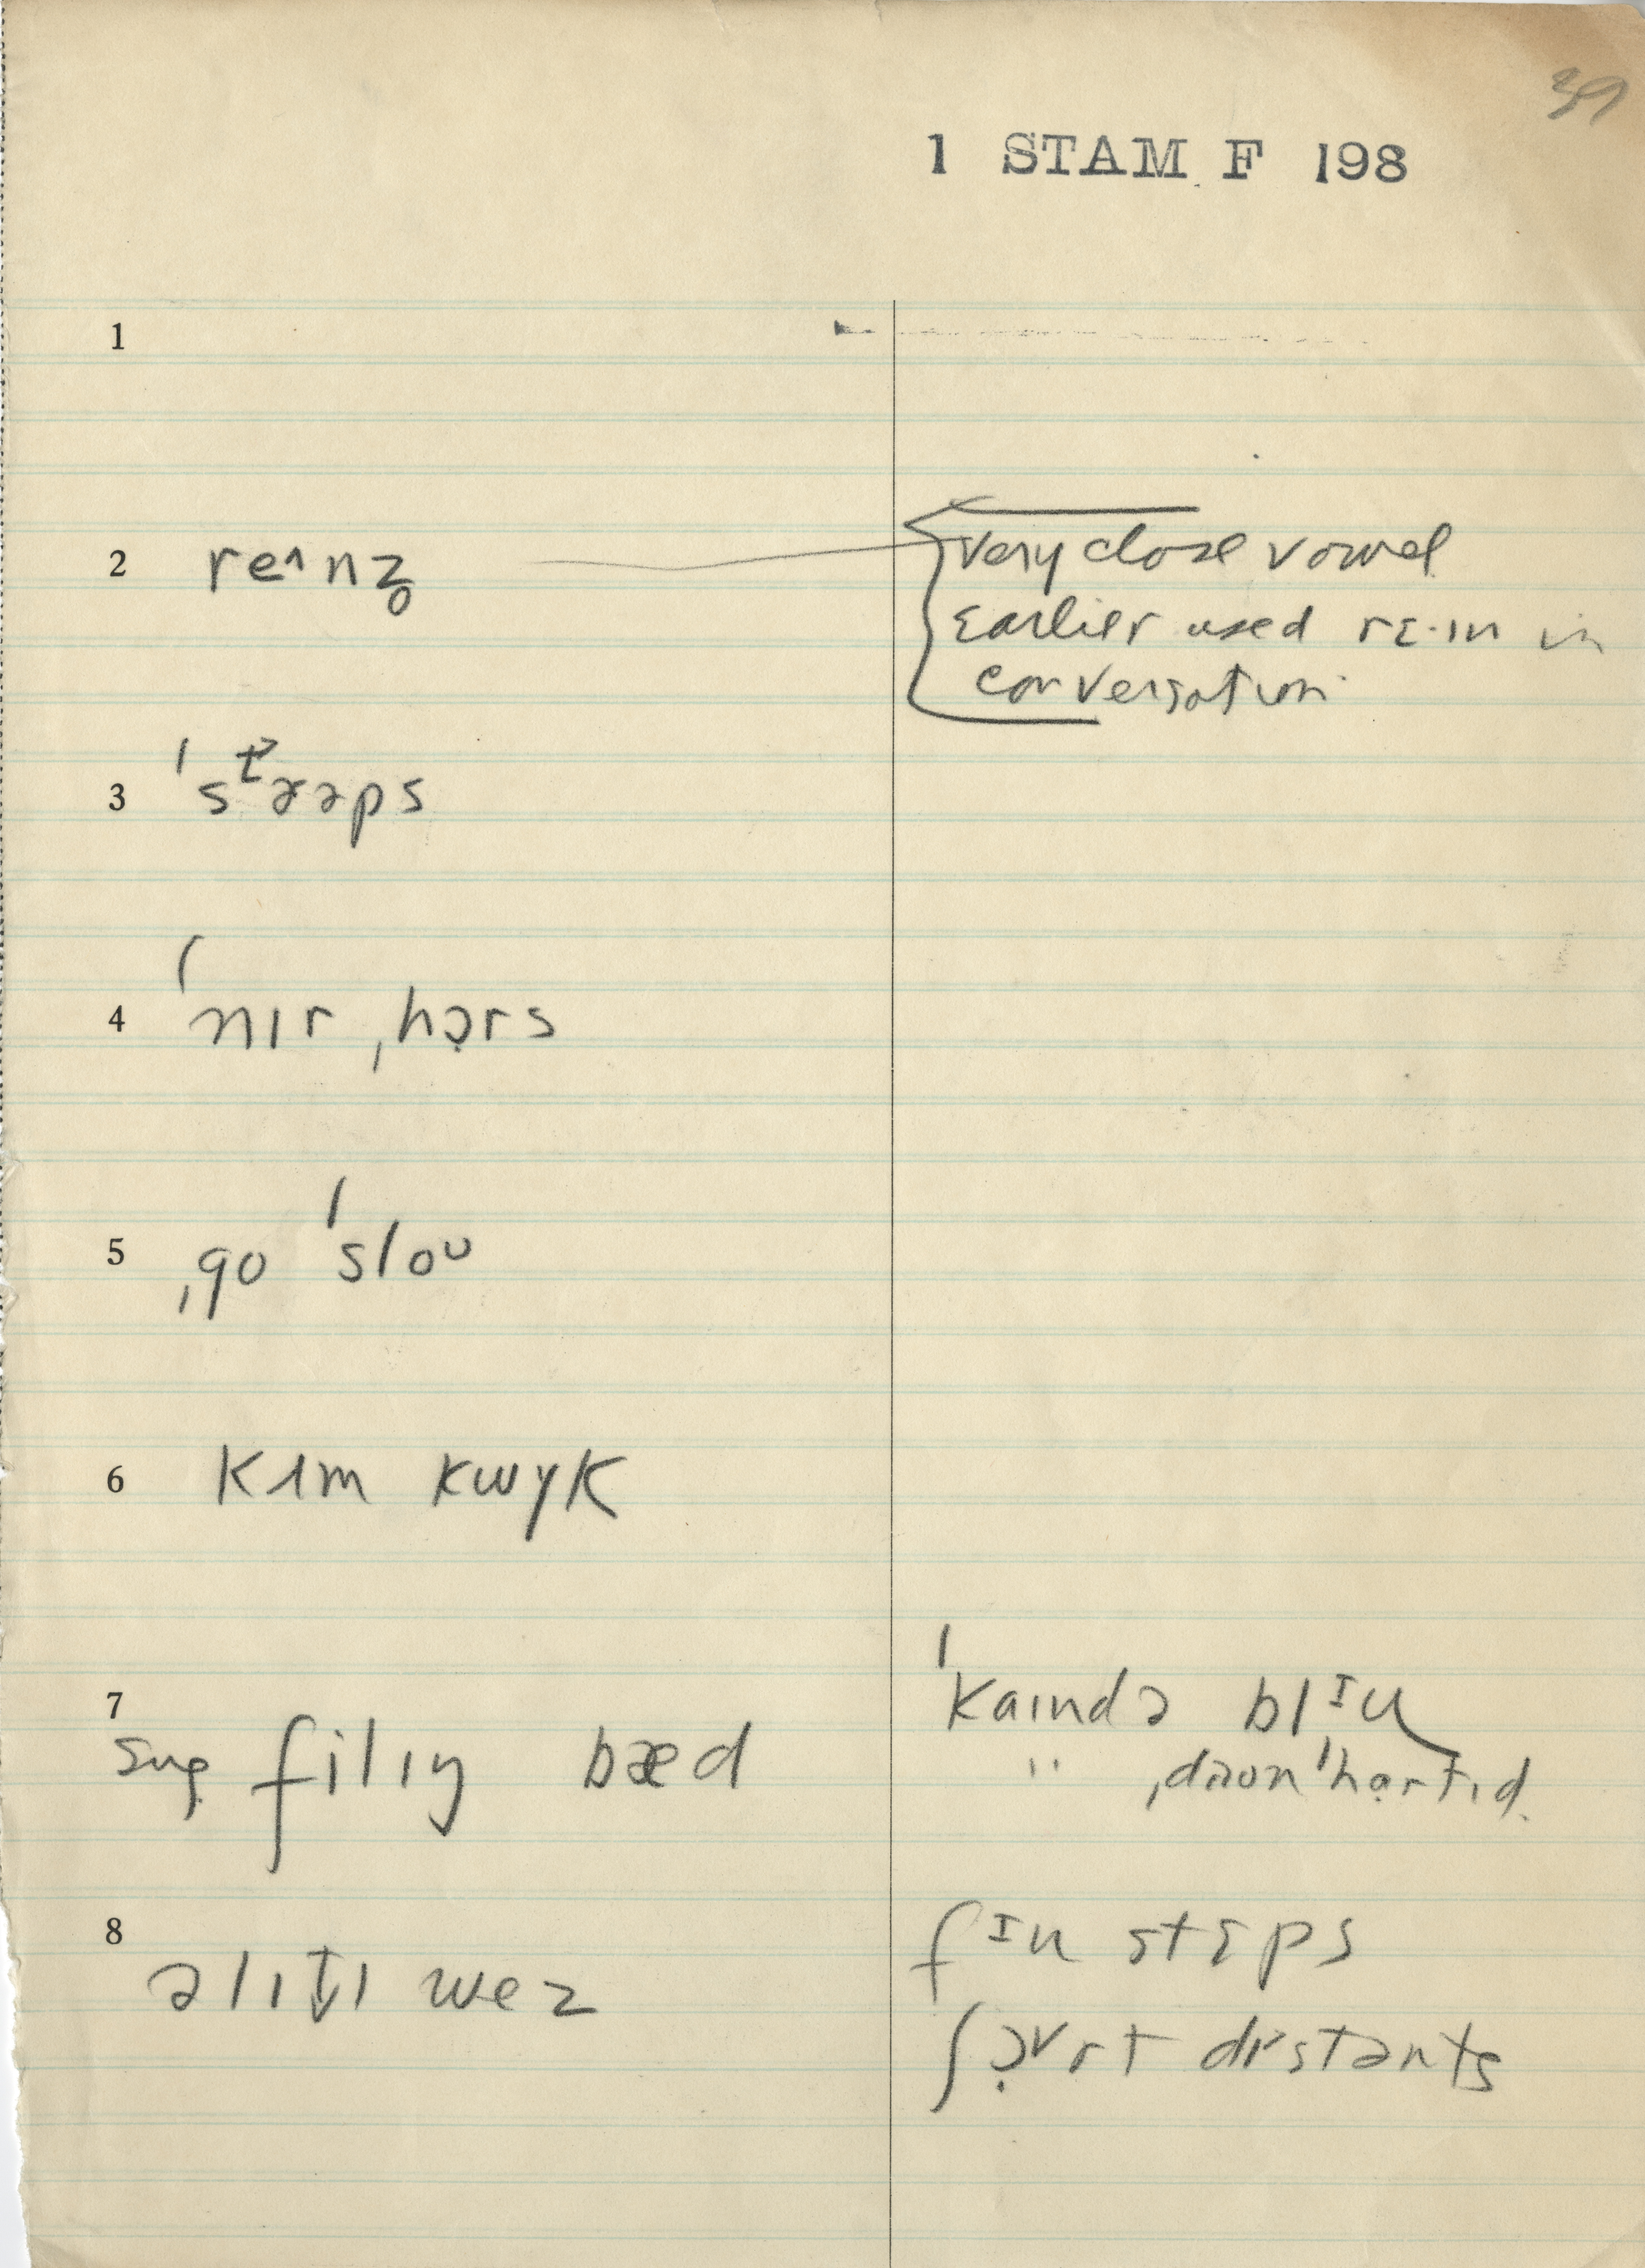 39
1 STAM F 198
1
2 re˄nz̥
very close vowel
Earlier used rɛ·ɪn in
conversation
3 ˈstɚəps
4 ˈnɪr ˌhɔ̣rs
5 ˌgo ˈsloᴜ
6 kʌm kwɪk
7
filɪŋ bæd
ˈkaɪndə blɪu
" ˌdaʊnˈhɑrtɪd
8 əlɪt̬l wez
fɪu stɛps
ʃɔ̣˅rt dɪstənts